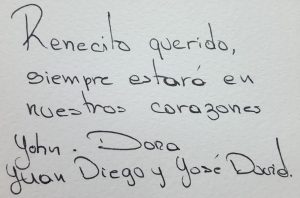 Renecito querido,
siempre estará en
nuestros corazones
John . Dora
Juan Diego y José David.